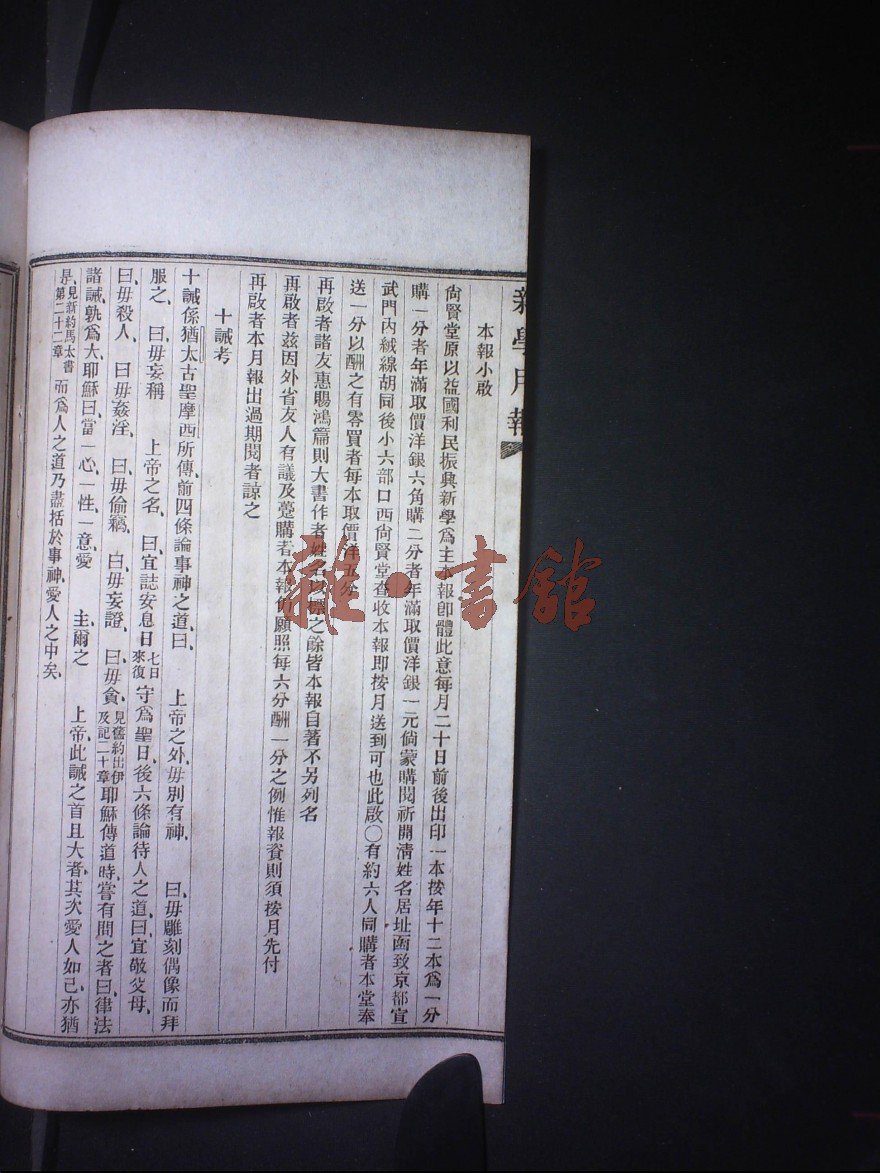 新學月報
本報小啟
尙賢堂原以益國利民振興新學爲主本報卽體此意每月二十日前後出印一本按年十二本爲一分
購一分者年滿取價洋銀六角購二分者年滿取價洋銀一元倘蒙購閱祈開淸姓名居址函致京都宣
武門內絨線胡同後小六部口西尙賢堂查收本報即按月送到可也此啟〇有約六人同購者本堂奉
送一分以酬之有零買者每本取價洋五分
再啟者諸友惠賜鴻篇則大書作者姓名以標之餘皆本報自著不另列名
再啟者茲因外省友人有議及躉購者本報仍願照每六分酬一分之例惟報資則須按月先付
再啟者本月報出過期閱者諒之
十誡考
十誡係猶太古聖摩西所傳、前四條論事神之道、曰、上帝之外、毋別有神、曰、毋雕刻偶像而拜
服之、曰、毋妄稱上帝之名、曰、宜誌安息日七日來復守爲聖日、後六條論待人之道、曰、宜敬父母、
曰、毋殺人、曰、毋姦淫、曰、毋偷竊、曰、毋妄證、曰、毋貪、見舊約出伊及記二十章耶穌傳道時、嘗有問之者曰、律法
諸誡、孰爲大、耶穌曰、當一心、一性、一意、愛主爾之上帝、此誡之首且大者、其次愛人如己、亦猶
是、見新約馬太書第二十二章而爲人之道乃盡括於事神、愛人之中矣、
雜·書館